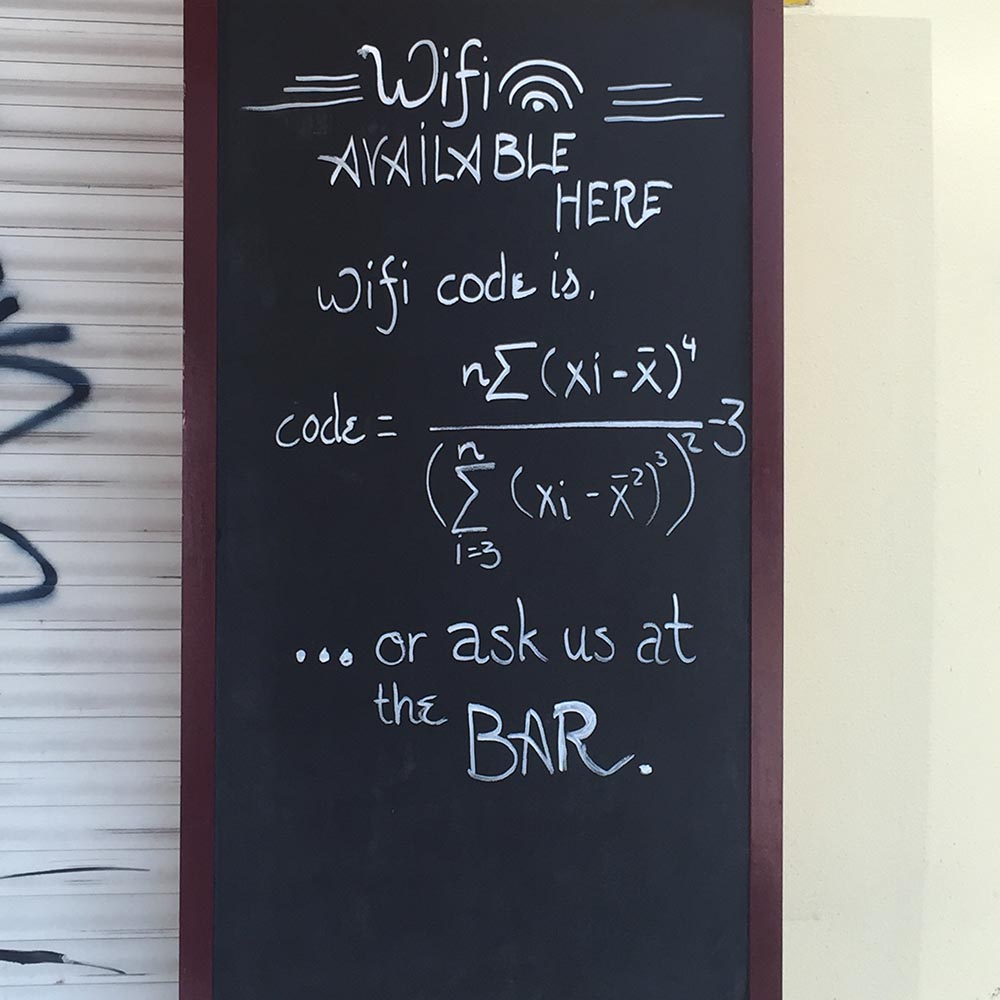 Wifi
AVAILABLE
HERE
Wifi code is.
code = n∑(xi-x̄)⁴ / (∑ⁿᵢ₌₃ (xi - x̄²)³)² -3
... or ask us at
the BAR.